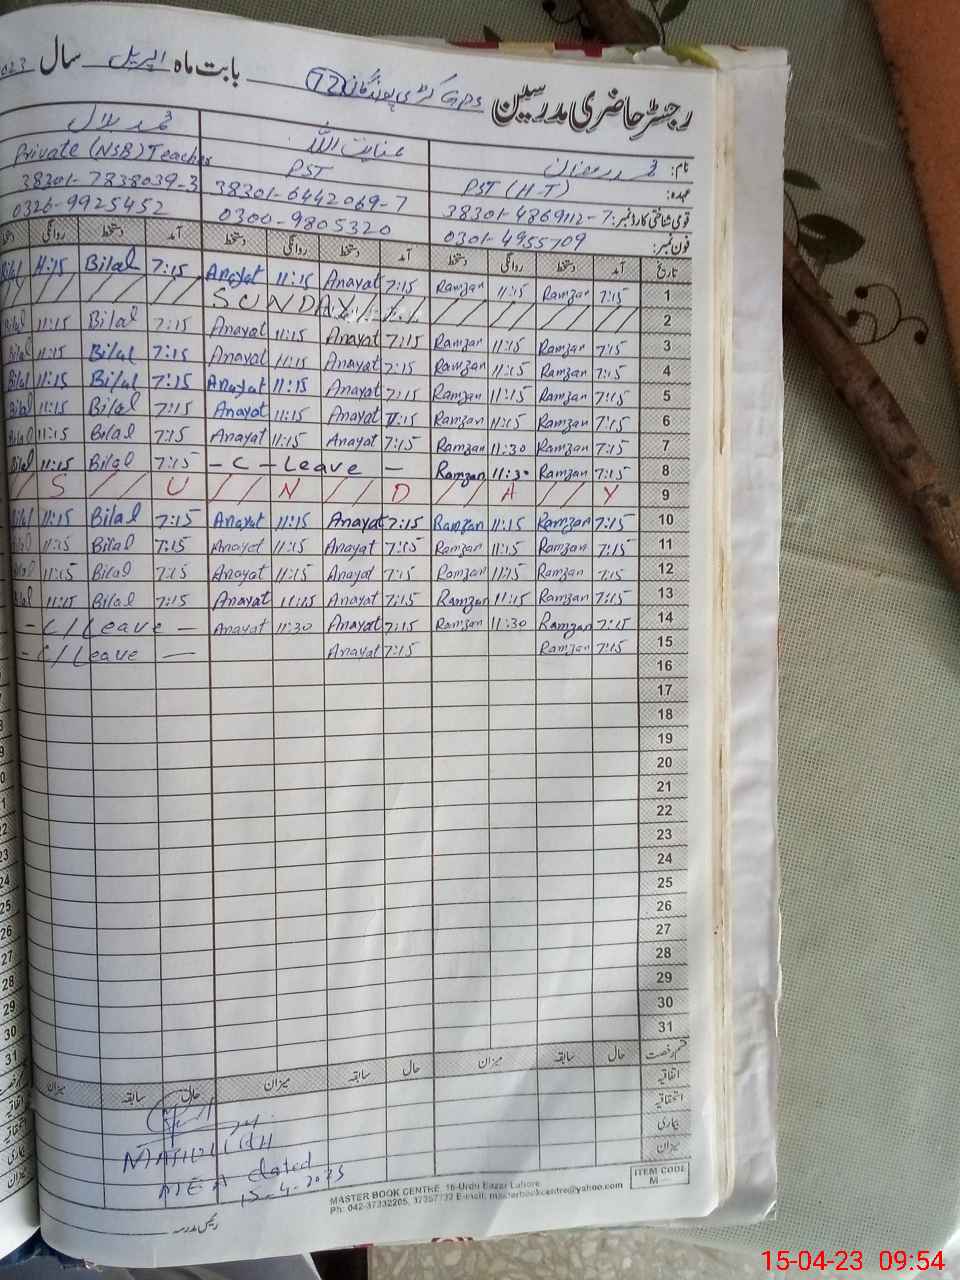 رجسٹر حاضری مدرسین GPS بابت ماہ اپریل سال 023
نام: محمد رمضان عنایت اللہ محمد بلال
عہدہ: PST (H-T) PST Private (NSB) Teacher
قومی شناختی کارڈ نمبر: 38301-4869112-7 38301-6442069-7 38301-7838039-3
فون نمبر: 0301-4955709 0300-9805320 0326-9925452
تاریخ آمد دستخط روانگی دستخط آمد دستخط روانگی دستخط آمد دستخط روانگی
1 7:15 Ramzan 11:15 Ramzan 7:15 Anayat 11:15 Anayat 7:15 Bilal 11:15 Bilal
2 SUNDAY
3 7:15 Ramzan 11:15 Ramzan 7:15 Anayat 11:15 Anayat 7:15 Bilal 11:15 Bilal
4 7:15 Ramzan 11:15 Ramzan 7:15 Anayat 11:15 Anayat 7:15 Bilal 11:15 Bilal
5 7:15 Ramzan 11:15 Ramzan 7:15 Anayat 11:15 Anayat 7:15 Bilal 11:15 Bilal
6 7:15 Ramzan 11:15 Ramzan 7:15 Anayat 11:15 Anayat 7:15 Bilal 11:15 Bilal
7 7:15 Ramzan 11:30 Ramzan 7:15 Anayat 11:15 Anayat 7:15 Bilal 11:15 Bilal
8 7:15 Ramzan 11:30 Ramzan - C - Leave - 7:15 Bilal 11:15 Bilal
9 S U N D A Y
10 7:15 Ramzan 11:15 Ramzan 7:15 Anayat 11:15 Anayat 7:15 Bilal 11:15 Bilal
11 7:15 Ramzan 11:15 Ramzan 7:15 Anayat 11:15 Anayat 7:15 Bilal 11:15 Bilal
12 7:15 Ramzan 11:15 Ramzan 7:15 Anayat 11:15 Anayat 7:15 Bilal 11:15 Bilal
13 7:15 Ramzan 11:15 Ramzan 7:15 Anayat 11:15 Anayat 7:15 Bilal 11:15 Bilal
14 7:15 Ramzan 11:30 Ramzan 7:15 Anayat 11:30 Anayat - C/Leave -
15 7:15 Ramzan 7:15 Anayat - C/Leave -
16
17
18
19
20
21
22
23
24
25
26
27
28
29
30
31
قسم رخصت حال سابقہ میزان حال سابقہ میزان حال سابقہ میزان
اتفاقیہ
استحقاقیہ
بیماری
میزان
MEA dated
15-4-2023
رئیس مدرسہ
MASTER BOOK CENTRE, 16-Urdu Bazar Lahore.
Ph: 042-37332205, 37357733 E-mail: masterbookcentre@yahoo.com
ITEM CODE
M
15-04-23 09:54